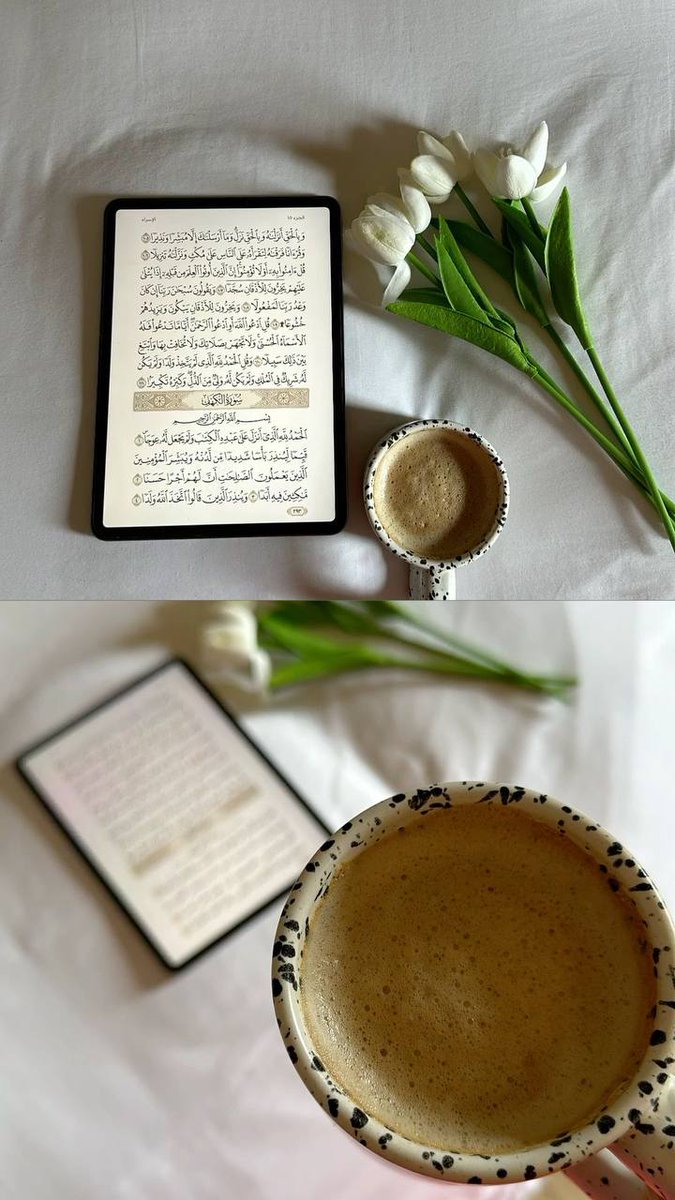 الجزء ١٥
الإسراء
وَبِٱلْحَقِّ أَنزَلْنَٰهُ وَبِٱلْحَقِّ نَزَلَ وَمَآ أَرْسَلْنَٰكَ إِلَّا مُبَشِّرًا وَنَذِيرًا ١٠٥
وَقُرْءَانًا فَرَقْنَٰهُ لِتَقْرَأَهُۥ عَلَى ٱلنَّاسِ عَلَىٰ مُكْثٍ وَنَزَّلْنَٰهُ تَنزِيلًا ١٠٦
قُلْ ءَامِنُوا۟ بِهِۦٓ أَوْ لَا تُؤْمِنُوٓا۟ إِنَّ ٱلَّذِينَ أُوتُوا۟ ٱلْعِلْمَ مِن قَبْلِهِۦٓ إِذَا يُتْلَىٰ
عَلَيْهِمْ يَخِرُّونَ لِلْأَذْقَانِ سُجَّدًا ١٠٧ وَيَقُولُونَ سُبْحَٰنَ رَبِّنَآ إِن كَانَ
وَعْدُ رَبِّنَا لَمَفْعُولًا ١٠٨ وَيَخِرُّونَ لِلْأَذْقَانِ يَبْكُونَ وَيَزِيدُهُمْ
خُشُوعًا ۩ ١٠٩ قُلِ ٱدْعُوا۟ ٱللَّهَ أَوِ ٱدْعُوا۟ ٱلرَّحْمَٰنَ أَيًّا مَّا تَدْعُوا۟ فَلَهُ
ٱلْأَسْمَآءُ ٱلْحُسْنَىٰ وَلَا تَجْهَرْ بِصَلَاتِكَ وَلَا تُخَافِتْ بِهَا وَٱبْتَغِ
بَيْنَ ذَٰلِكَ سَبِيلًا ١١٠ وَقُلِ ٱلْحَمْدُ لِلَّهِ ٱلَّذِى لَمْ يَتَّخِذْ وَلَدًا وَلَمْ يَكُن
لَّهُۥ شَرِيكٌ فِى ٱلْمُلْكِ وَلَمْ يَكُن لَّهُۥ وَلِىٌّ مِّنَ ٱلذُّلِّ وَكَبِّرْهُ تَكْبِيرًۢا ١١١
سُورَةُ الكَهْفِ
بِسْمِ ٱللَّهِ ٱلرَّحْمَٰنِ ٱلرَّحِيمِ
ٱلْحَمْدُ لِلَّهِ ٱلَّذِىٓ أَنزَلَ عَلَىٰ عَبْدِهِ ٱلْكِتَٰبَ وَلَمْ يَجْعَل لَّهُۥ عِوَجَا ١
قَيِّمًا لِّيُنذِرَ بَأْسًا شَدِيدًا مِّن لَّدُنْهُ وَيُبَشِّرَ ٱلْمُؤْمِنِينَ
ٱلَّذِينَ يَعْمَلُونَ ٱلصَّٰلِحَٰتِ أَنَّ لَهُمْ أَجْرًا حَسَنًا ٢
مَّٰكِثِينَ فِيهِ أَبَدًا ٣ وَيُنذِرَ ٱلَّذِينَ قَالُوا۟ ٱتَّخَذَ ٱللَّهُ وَلَدًا ٤
٢٩٣